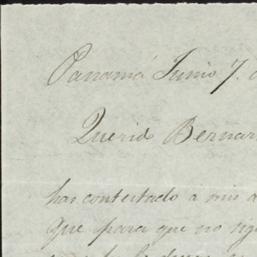 Panamá Junio 7. d
Querid Bernar
han contestado a mis
Que para que no sig